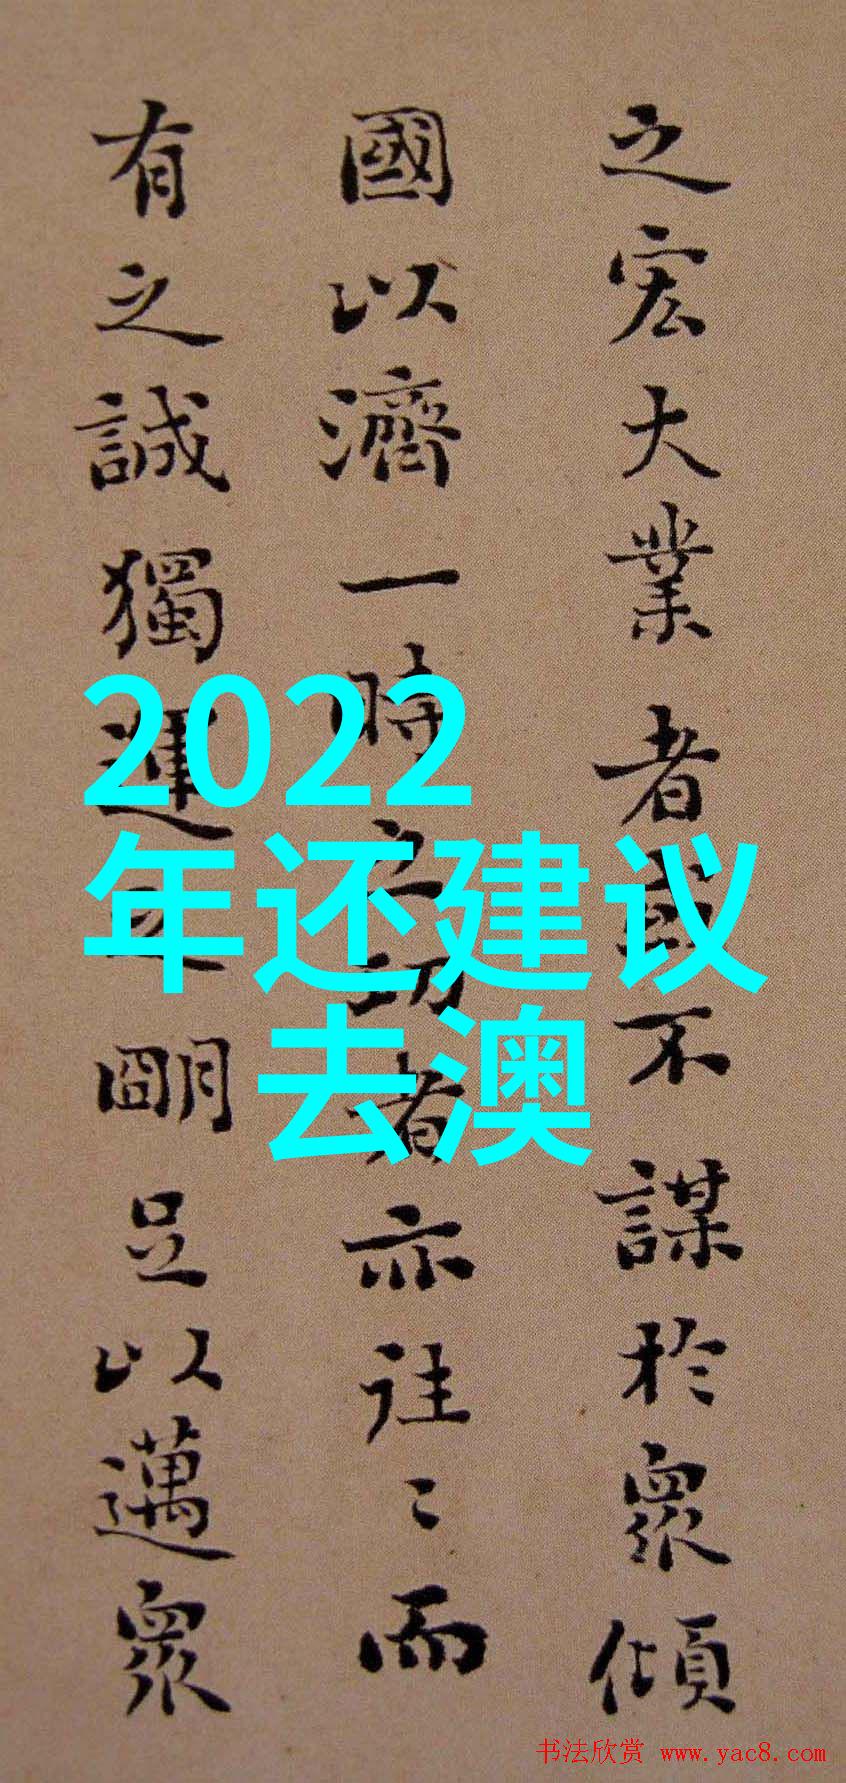 之宏大業者或不謀於衆傾
國以濟一時之功者亦往〻而
有之誠獨運之朙足以邁衆
2022
年还建议
去澳
书法欣赏 www.yac8.com